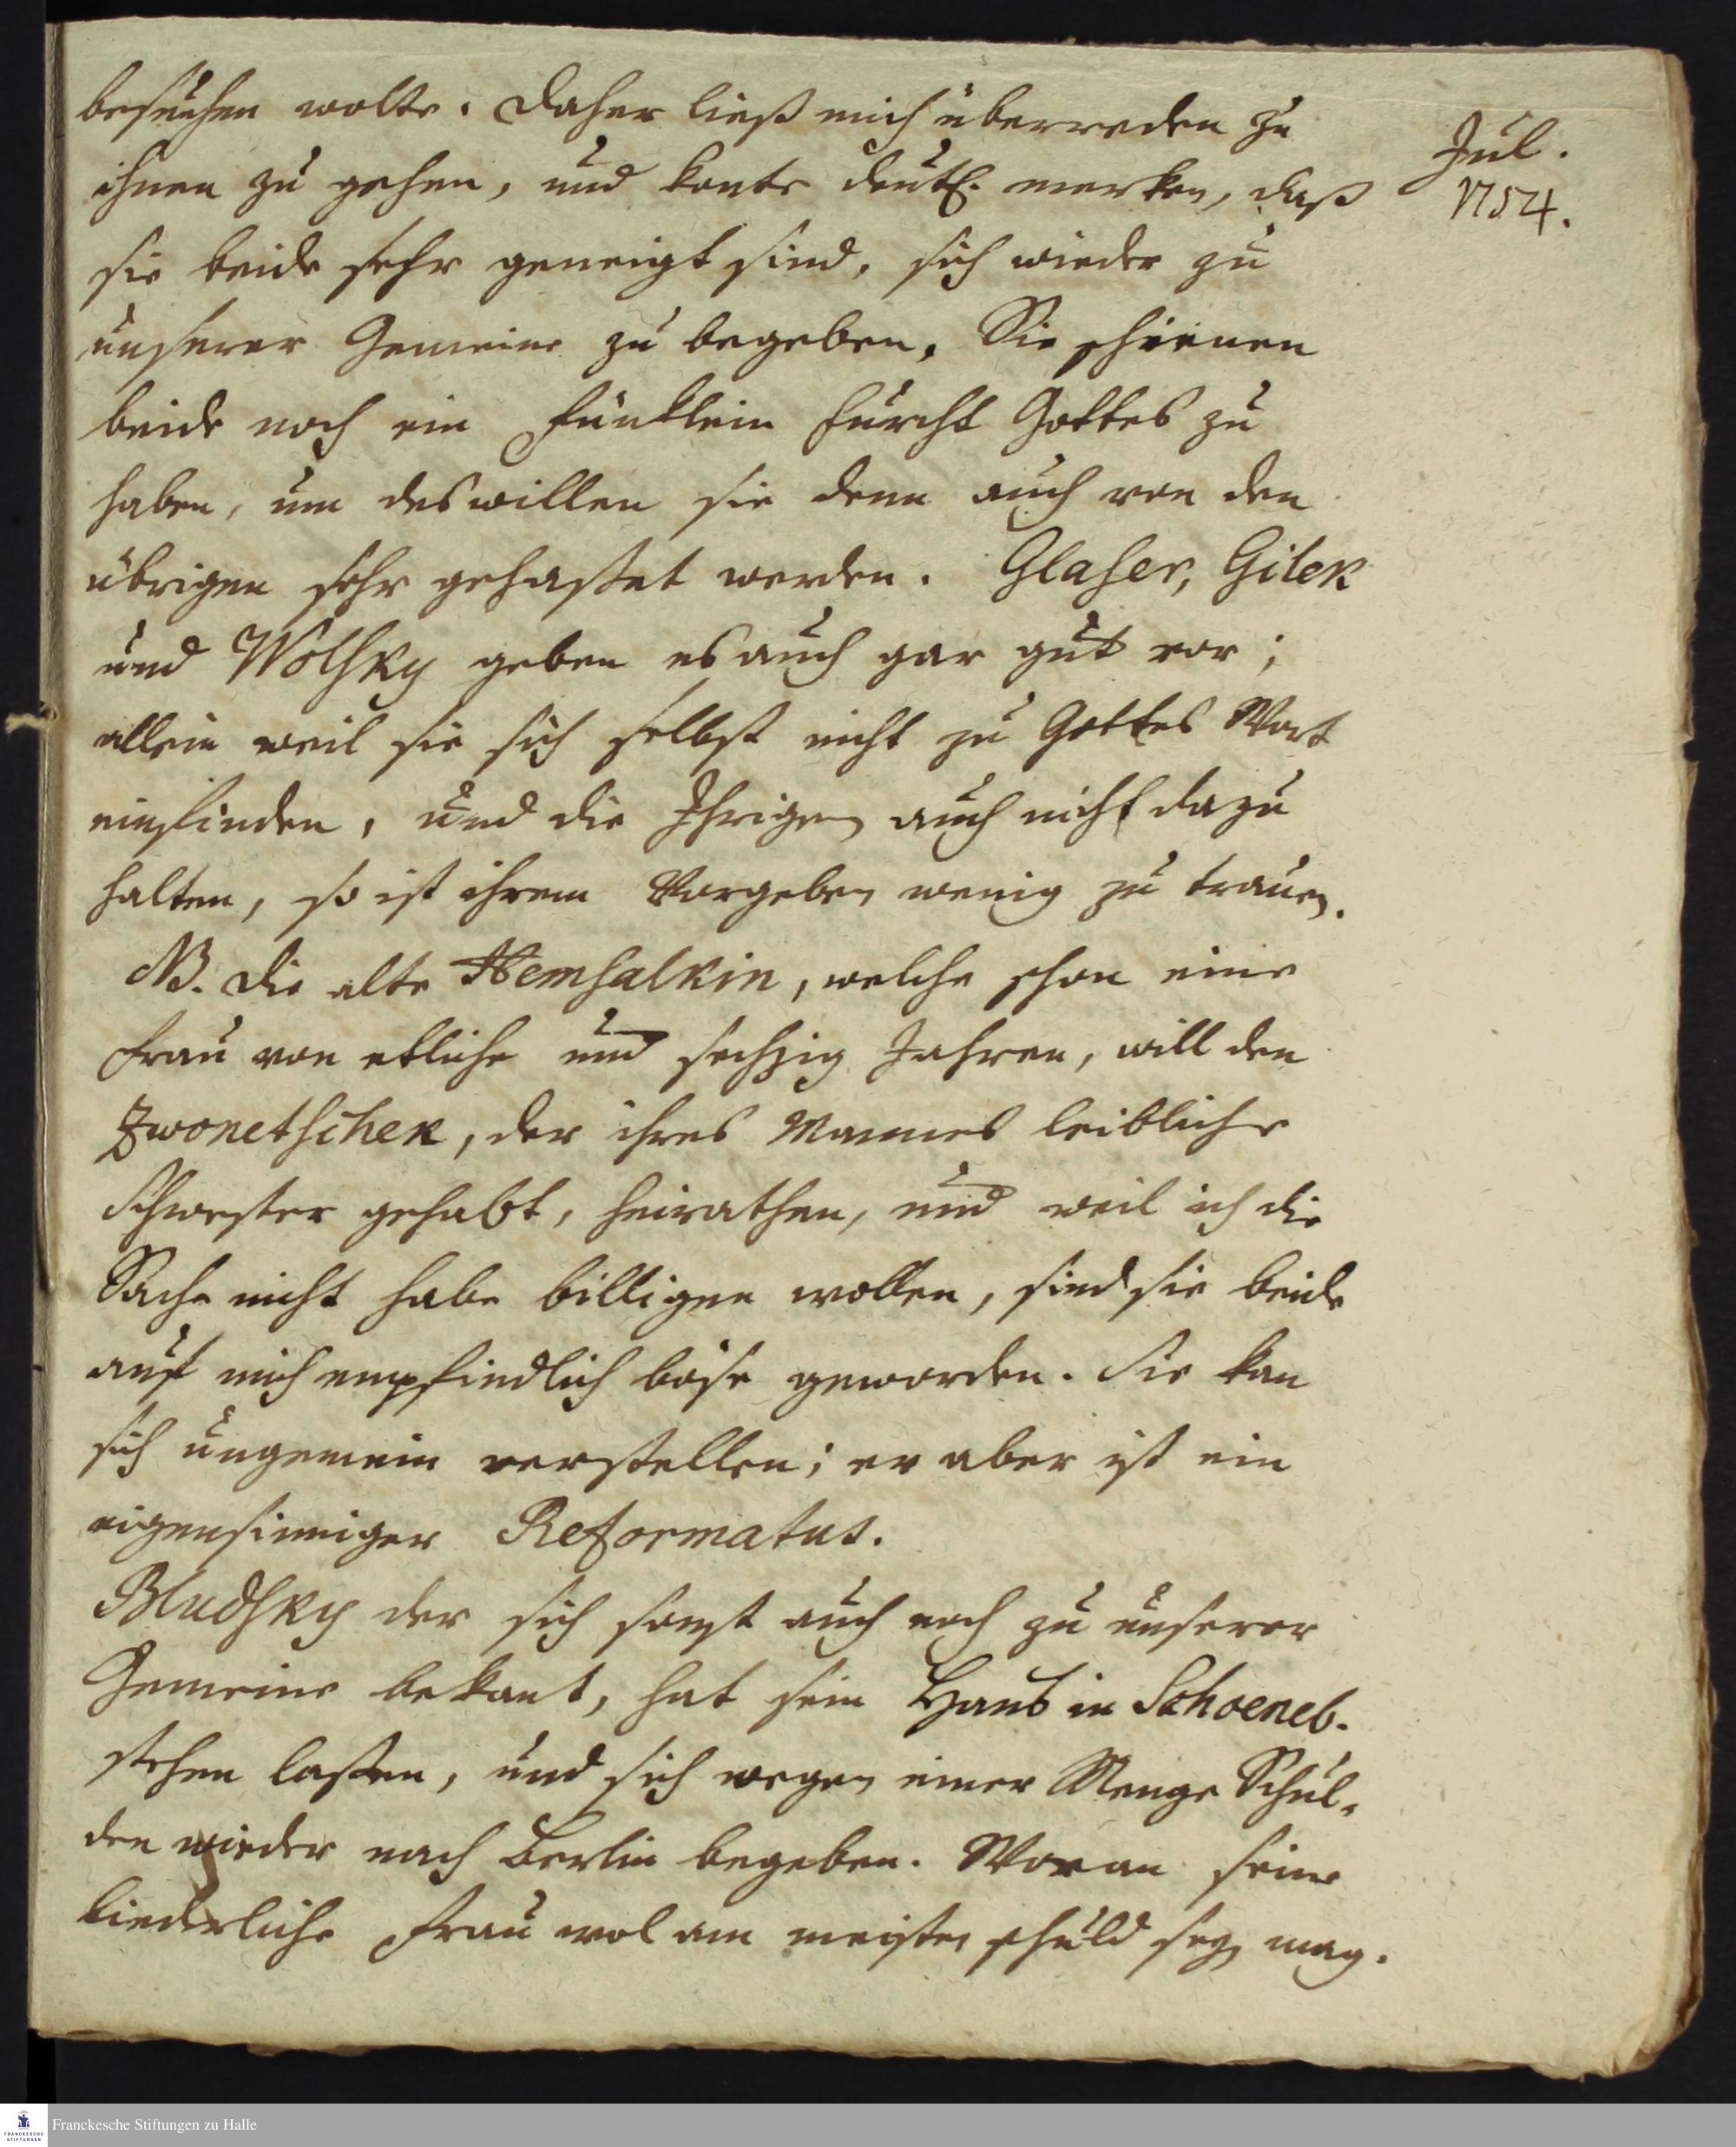 besuchen wolte. Daher ließ mich überreden zu
ihnen zu gehen, und konte deutl. merken, daß
sie beide sehr geneigt sind, sich wieder zu
unserer Gemeine zu begeben. Sie schienen
beide noch ein Fünklein Furcht Gottes zu
haben, um deswillen sie denn auch von den
übrigen sehr gehaßet werden. Glaser, Gilek
und Wolsky geben es auch gar gut vor;
allein weil sie sich selbst nicht zu Gottes Wort
einfinden, und die Ihrigen auch nicht dazu
halten, so ist ihrem Vorgeben wenig zu trauen.
NB. Die alte Nemsalkin, welche schon eine
Frau von etliche und sechzig Jahren, will den
Zwonetschek, der ihres Mannes leibliche
Schwester gehabt, heirathen, und weil ich die
Sache nicht habe billigen wollen, sind sie beide
auf mich empfindlich böse geworden. Sie kan
sich ungemein verstellen; er aber ist ein
eigensinniger Reformatus.
Bludsky der sich sonst auch noch zu unserer
Gemeine bekant, hat sein Haus in Schoeneb.
stehen laßen, und sich wegen einer Menge Schul-
den wieder nach Berlin begeben. Woran seine
liederliche Frau wol am meisten schuld seyn mag.
Jul.
1754.
Franckesche Stiftungen zu Halle
FRANCKESCHE
STIFTUNGEN